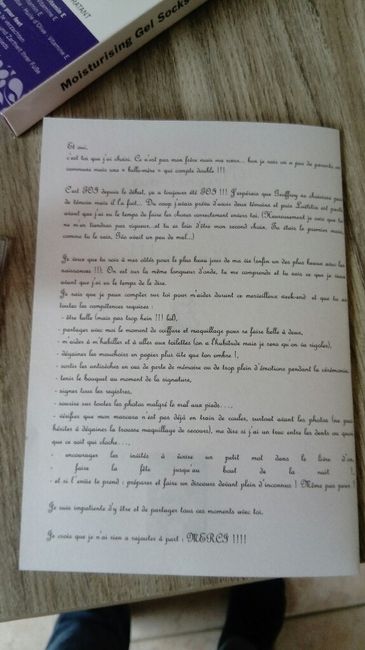 HYDRATANT
Moisturising Gel Socks
Et oui,
c'est toi que j'ai choisi. Ce n'est pas mon frère mais ma sœur... bon je sais on a peu de parents en
commun mais una « belle-mère » qui compte double !!!
C'est TOI depuis le début, ça a toujours été TOI !!! J'espérais que Geoffrey ne choisirait pas
de témoin mais il l'a fait... Du coup j'avais prévu d'avoir deux témoins et puis Laëtitia est partie
avant que j'ai eu le temps de faire les choses correctement envers toi. (Heureusement je sais que tu
ne m'en tiendras pas rigueur...et tu es loin d'être mon second choix. Tu étais le premier mais,
comme tu le sais, Géo avait un peu de mal...)
Je veux que tu sois à mes côtés pour le plus beau jour de ma vie (enfin un des plus beaux avec les
naissances !!). On est sur la même longueur d'onde, tu me comprends et tu sais ce que je veux
avant que j'ai eu le temps de le dire.
Je sais que je peux compter sur toi pour m'aider durant ce merveilleux week-end et que tu as
toutes les compétences requises :
- être belle (mais pas trop hein !!! lol),
- partager avec moi le moment de coiffure et maquillage pour se faire belle à deux,
- m'aider à m'habiller et à aller aux toilettes (on a l'habitude mais je sens qu'on va rigoler),
- dégainer les mouchoirs en papier plus vite que ton ombre !,
- sortir les antisèches en cas de perte de mémoire ou de trop plein d'émotions pendant la cérémonie,
- tenir le bouquet au moment de la signature,
- signer tous les registres,
- sourire sur toutes les photos malgré le mal aux pieds....,
- vérifier que mon mascara n'est pas déjà en train de couler, surtout avant les photos (ne pas
hésiter à dégainer la trousse maquillage de secours), me dire si j'ai un truc entre les dents ou quoi
que ce soit qui cloche...,
- encourager les invités à écrire un petit mot dans le livre d'or,
- faire la fête jusqu'au bout de la nuit !,
- et si l'envie te prend : préparer et faire un discours devant plein d'inconnus ! Même pas peur !
Je suis impatiente d'y être et de partager tous ces moments avec toi.
Je crois que je n'ai rien a rajouter à part : MERCI !!!!